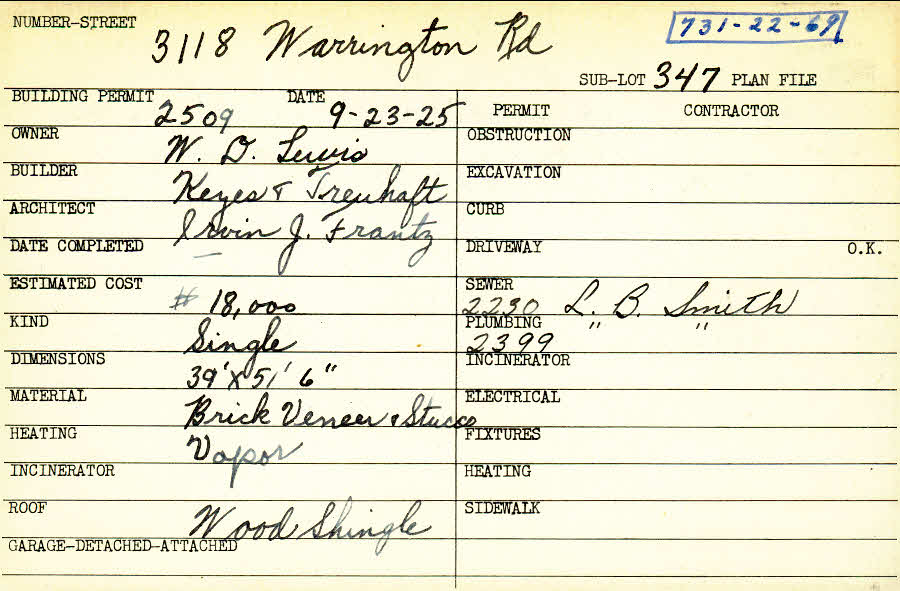 NUMBER-STREET 3118 Warrington Rd 731-22-69
SUB-LOT 347 PLAN FILE
BUILDING PERMIT 2509 DATE 9-23-25 PERMIT CONTRACTOR
OWNER W. D. Lewis OBSTRUCTION
BUILDER Keyes & Treuhaft EXCAVATION
ARCHITECT Irvin J. Frantz CURB
DATE COMPLETED — DRIVEWAY O.K.
ESTIMATED COST # 18,000 SEWER 2230 L. B. Smith
KIND Single PLUMBING 2399 " "
DIMENSIONS 39' X 51' 6" INCINERATOR
MATERIAL Brick Veneer & Stucco ELECTRICAL
HEATING Vapor FIXTURES
INCINERATOR HEATING
ROOF Wood Shingle SIDEWALK
GARAGE-DETACHED-ATTACHED